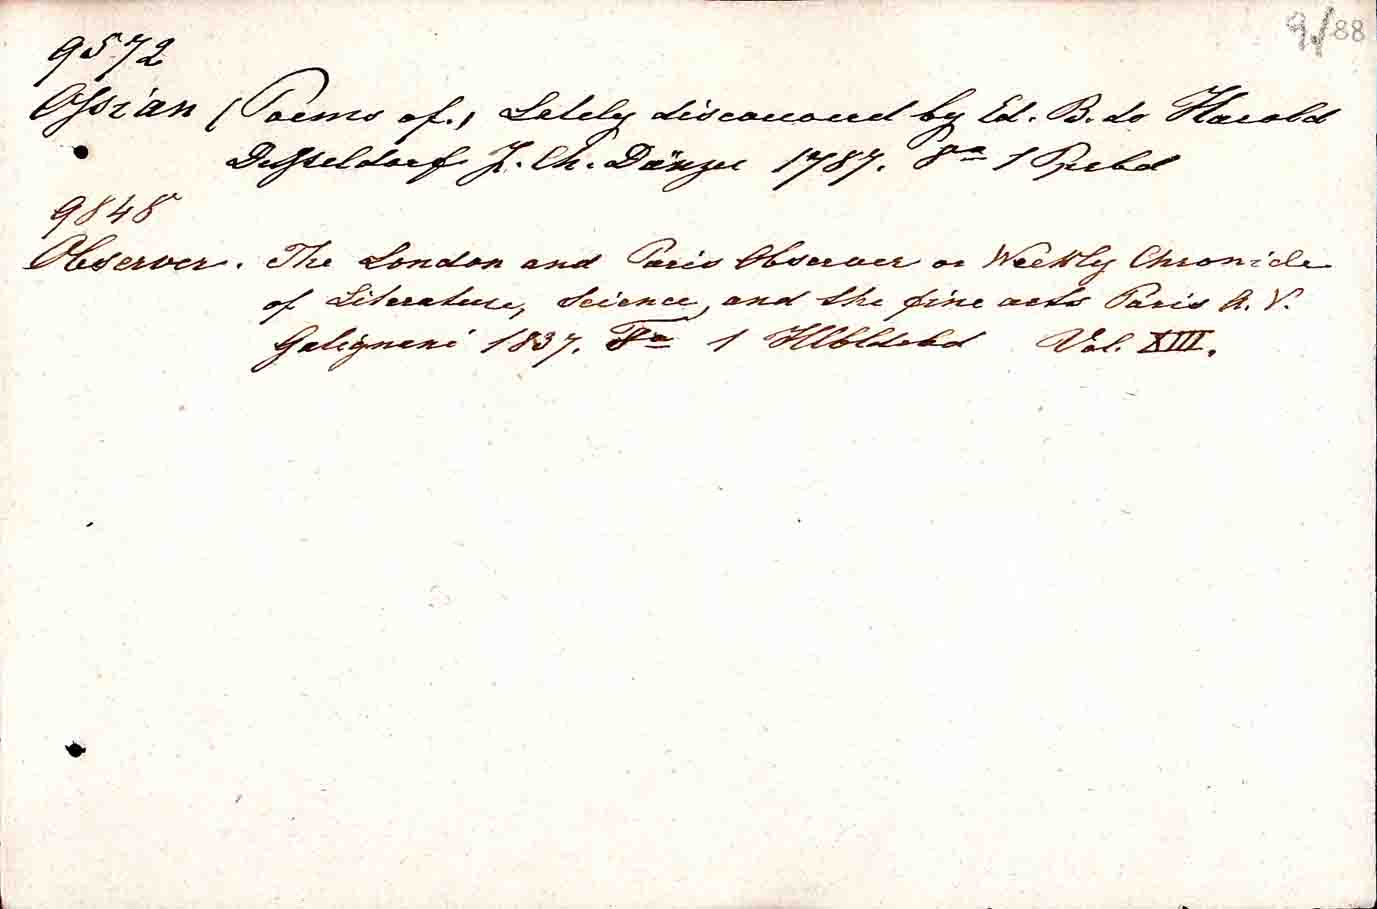 9/88
9572
Ossian (Poems of.) Lately discovered by Ed. B. de Harold
Dusseldorf J. Ch. Dänzer 1787. 8º 1 Ppbd
9848
Observer. The London and Paris Observer or Weekly Chronicle
of Literature, Science, and the fine arts Paris A. V.
Galignani 1837. 1 Hlbldbd Vol. XIII.